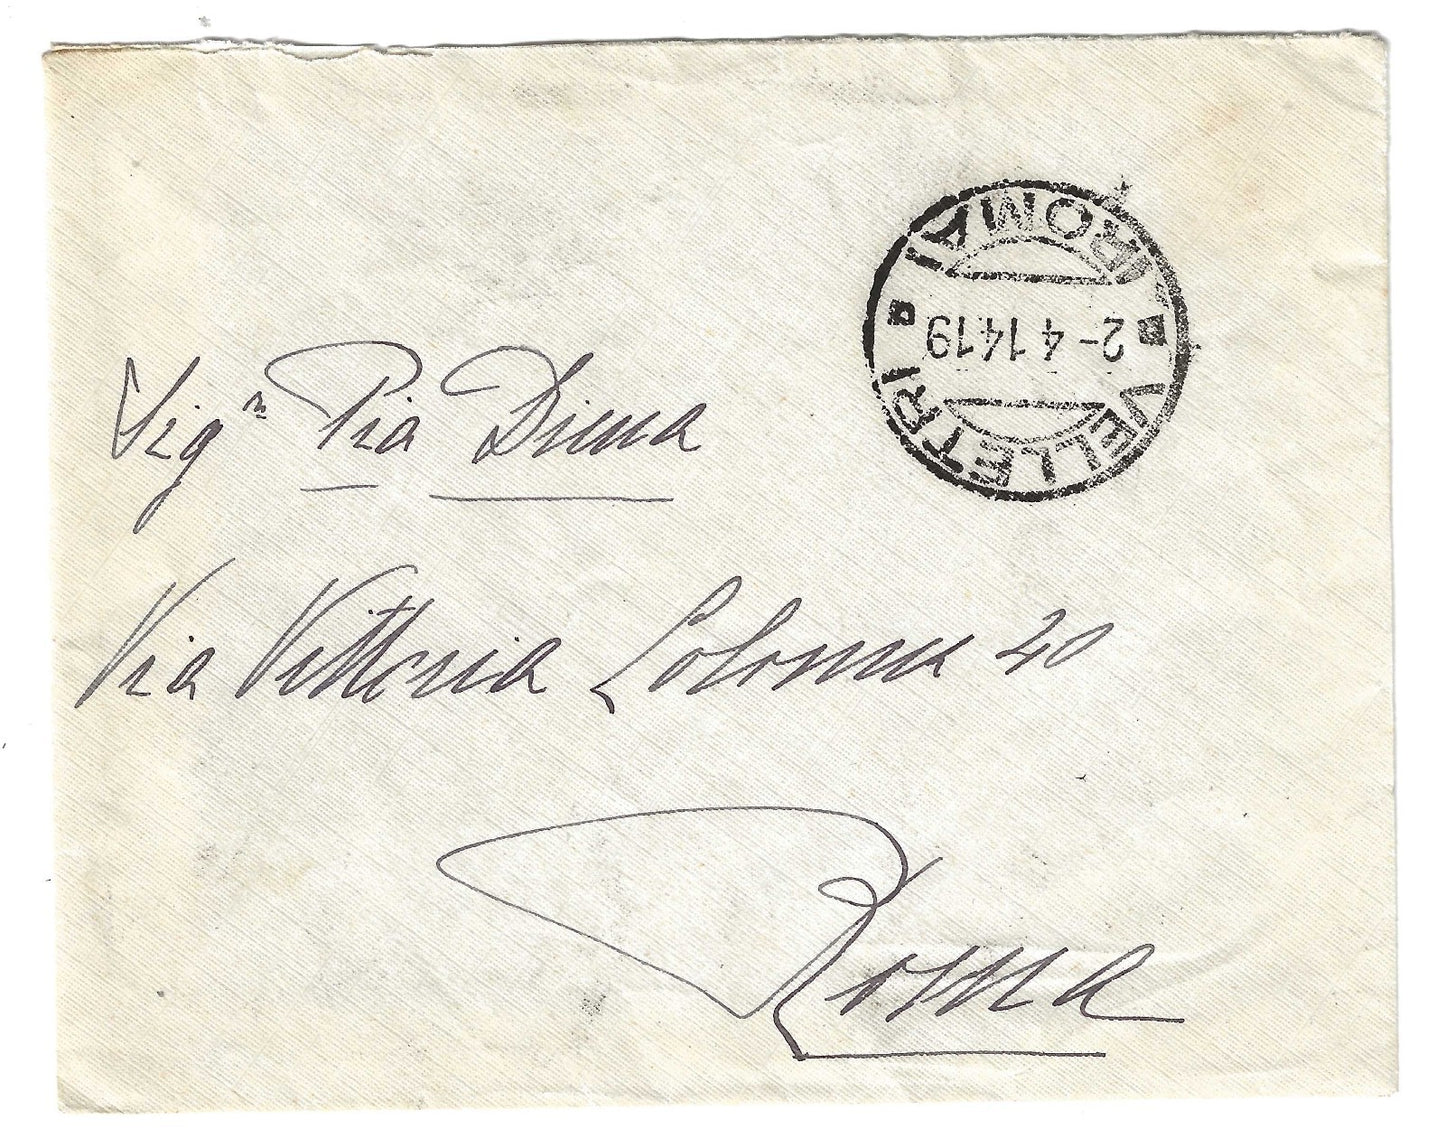 VELLETRI
(ROMA)
2-4 14.19
Sig.ra Pia Dima
Via Vittoria Colonna 20
Roma